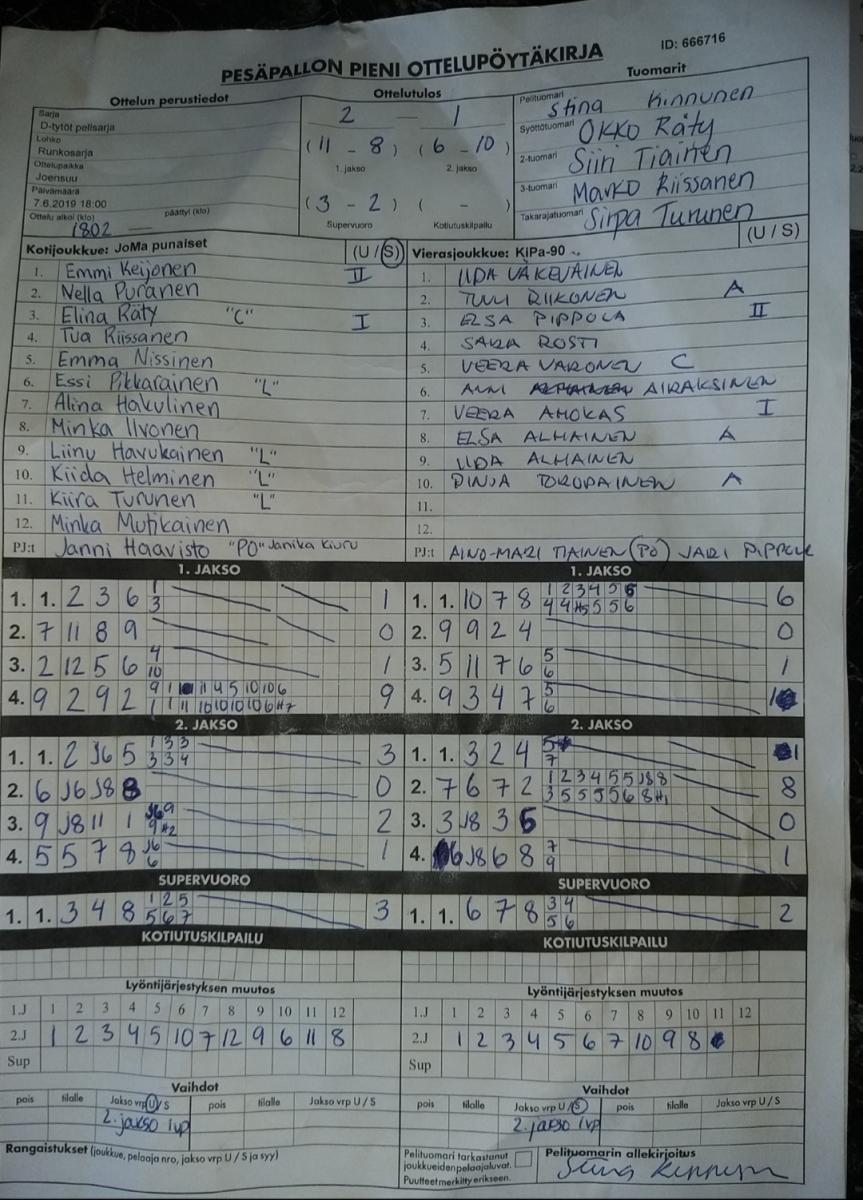 PESÄPALLON PIENI OTTELUPÖYTÄKIRJA
ID: 666716
Ottelun perustiedot
Sarja
D-tytöt pelisarja
Lohko
Runkosarja
Ottelupaikka
Joensuu
Päivämäärä
7.6.2019 18:00
Ottelu alkoi (klo) päättyi (klo)
1802 —
Ottelutulos
2 — 1
(11 - 8) (6 - 10)
1. jakso 2. jakso
(3 - 2) ( - )
Supervuoro Kotiutuskilpailu
Tuomarit
Pelituomari Stina Kinnunen
Syöttötuomari Okko Räty
2-tuomari Siiri Tiainen
3-tuomari Marko Riissanen
Takarajatuomari Sirpa Turunen
Kotijoukkue: JoMa punaiset (U / S)
1. Emmi Keijonen II
2. Nella Puranen
3. Elina Räty "C" I
4. Tua Riissanen
5. Emma Nissinen
6. Essi Pikkarainen "L"
7. Alina Hakulinen
8. Minka Ilvonen
9. Liinu Havukainen "L"
10. Kiida Helminen "L"
11. Kiira Turunen "L"
12. Minka Mutikainen
PJ:t Janni Haavisto "PO" Janika Kiuru
Vierasjoukkue: KiPa-90 (U / S)
1. IIDA VÄKEVÄINEN
2. TUULI RIIKONEN A
3. ELSA PIPPOLA II
4. SARA ROSTI
5. VEERA VARONEN C
6. ANNI AIRAKSINEN
7. VEERA AHOKAS I
8. ELSA ALHAINEN A
9. IIDA ALHAINEN
10. PINJA TOROPAINEN A
11.
12.
PJ:t AINO-MARI TIAINEN (PO) JARI PIPPOLA
1. JAKSO
1. 1. 2 3 6 1 3 1
2. 7 11 8 9 0
3. 2 12 5 6 4 10 1
4. 9 2 9 2 9
1. JAKSO
1. 1. 10 7 8 1 2 3 4 5 6 6
4 4 H5 5 5 6
2. 9 9 2 4 0
3. 5 11 7 6 5 6 1
4. 9 3 4 7 5 6 1
2. JAKSO
1. 1. 2 J6 5 1 3 3 3
3 3 4
2. 6 J6 J8 8 0
3. 9 J8 11 1 J6 9 2
9 H2
4. 5 5 7 8 J6 6 1
2. JAKSO
1. 1. 3 2 4 5 7 1
2. 7 6 7 2 1 2 3 4 5 5 J8 8 8
3 5 5 5 5 6 8 H1
3. 3 J8 3 6 0
4. 6 J8 6 8 7 9 1
SUPERVUORO
1. 1. 3 4 8 1 2 5 3
5 6 7
SUPERVUORO
1. 1. 6 7 8 3 4 2
5 6
KOTIUTUSKILPAILU
KOTIUTUSKILPAILU
Lyöntijärjestyksen muutos
1.J 1 2 3 4 5 6 7 8 9 10 11 12
2.J 1 2 3 4 5 10 7 12 9 6 11 8
Sup
Lyöntijärjestyksen muutos
1.J 1 2 3 4 5 6 7 8 9 10 11 12
2.J 1 2 3 4 5 6 7 10 9 8
Sup
Vaihdot
pois tilalle Jakso vrp U / S pois tilalle Jakso vrp U / S
2. jakso 1vp
Vaihdot
pois tilalle Jakso vrp U / S pois tilalle Jakso vrp U / S
2. jakso 1vp
Rangaistukset (joukkue, pelaaja nro, jakso vrp U / S ja syy)
Pelituomari tarkastanut
joukkueiden pelaajaluvat.
Puutteet merkitty erikseen.
Pelituomarin allekirjoitus
Stina Kinnunen